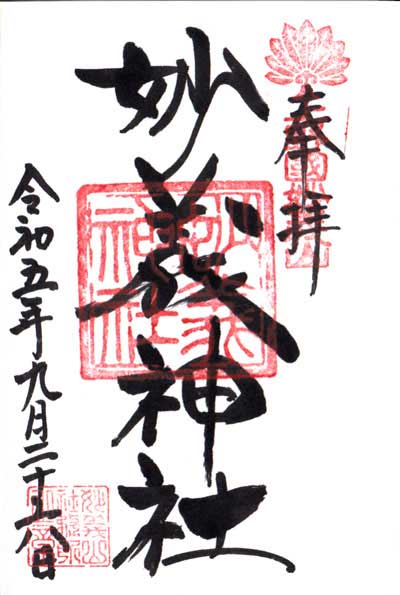 奉拝
妙義神社
妙義
神社
令和五年九月二十六日